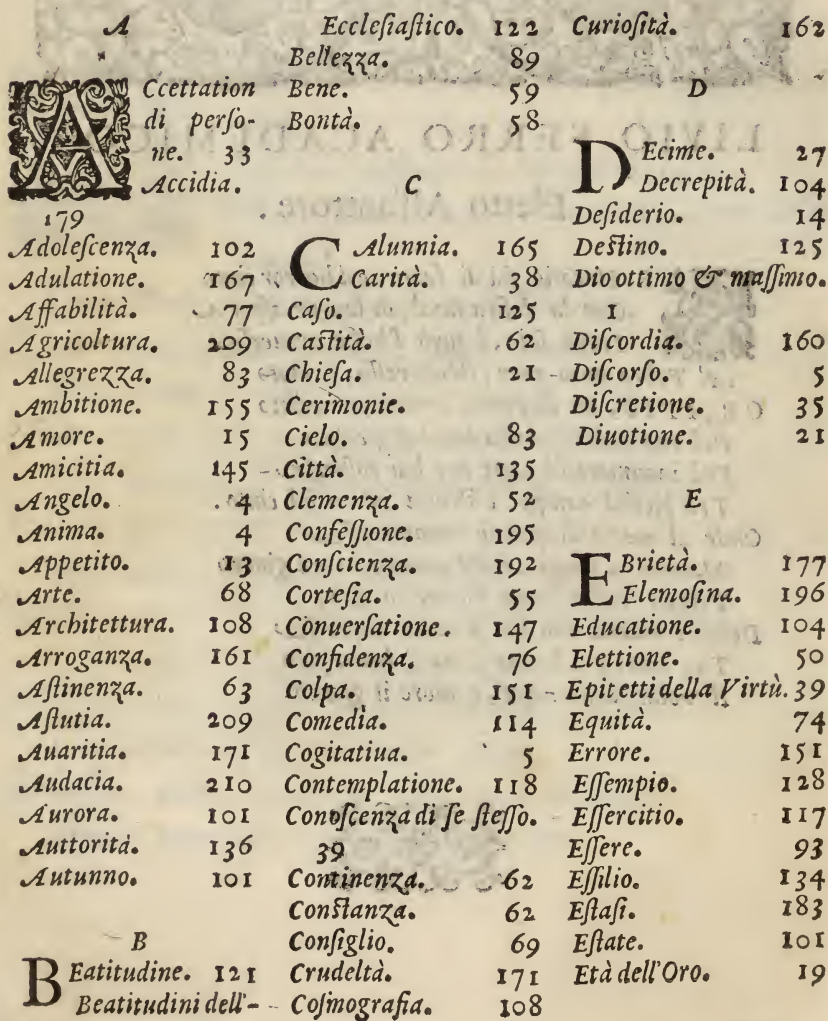 A
ACcettation
di perſo-
ne. 33
Accidia.
179
Adoleſcenza. 102
Adulatione. 167
Affabilità. 77
Agricoltura. 209
Allegrezza. 83
Ambitione. 155
Amore. 15
Amicitia. 145
Angelo. 4
Anima. 4
Appetito. 13
Arte. 68
Architettura. 108
Arroganza. 161
Aſtinenza. 63
Aſtutia. 209
Auaritia. 171
Audacia. 210
Aurora. 101
Auttorità. 136
Autunno. 101
B
BEatitudine. 121
Beatitudini dell'-
Eccleſiaſtico. 122
Bellezza. 89
Bene. 59
Bontà. 58
C
CAlunnia. 165
Carità. 38
Caſo. 125
Caſtità. 62
Chieſa. 21
Cerimonie.
Cielo. 83
Città. 135
Clemenza. 52
Confeſſione. 195
Conſcienza. 192
Corteſia. 55
Conuerſatione. 147
Confidenza. 76
Colpa. 151
Comedia. 114
Cogitatiua. 5
Contemplatione. 118
Conoſcenza di ſe ſteſſo.
39
Continenza. 62
Conſtanza. 62
Conſiglio. 69
Crudeltà. 171
Coſmografia. 108
Curioſità. 162
D
DEcime. 27
Decrepità. 104
Deſiderio. 14
Deſtino. 125
Dio ottimo & maſſimo.
I
Diſcordia. 160
Diſcorſo. 5
Diſcretione. 35
Diuotione. 21
E
EBrietà. 177
Elemoſina. 196
Educatione. 104
Elettione. 50
Epitetti della Virtù. 39
Equità. 74
Errore. 151
Eſſempio. 128
Eſſercitio. 117
Eſſere. 93
Eſſilio. 134
Eſtaſi. 183
Eſtate. 101
Età dell'Oro. 19